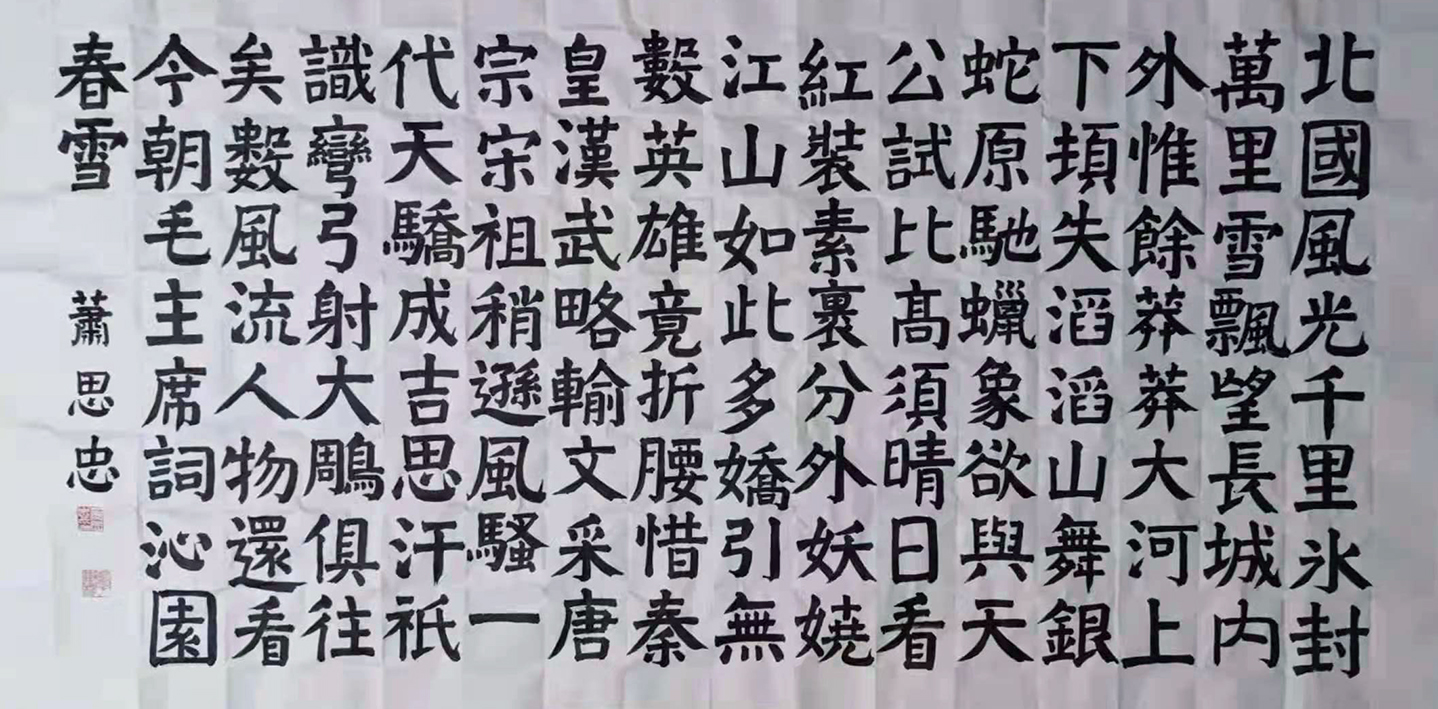 北國風光千里氷封
萬里雪飄望長城内
外惟餘莽莽大河上
下頓失滔滔山舞銀
蛇原馳蠟象欲與天
公試比髙須晴日看
紅裝素裹分外妖嬈
江山如此多嬌引無
數英雄竟折腰惜秦
皇漢武略輸文采唐
宗宋祖稍遜風騷一
代天驕成吉思汗祇
識彎弓射大鵰俱往
矣數風流人物還看
今朝毛主席詞沁園
春雪
蕭思忠